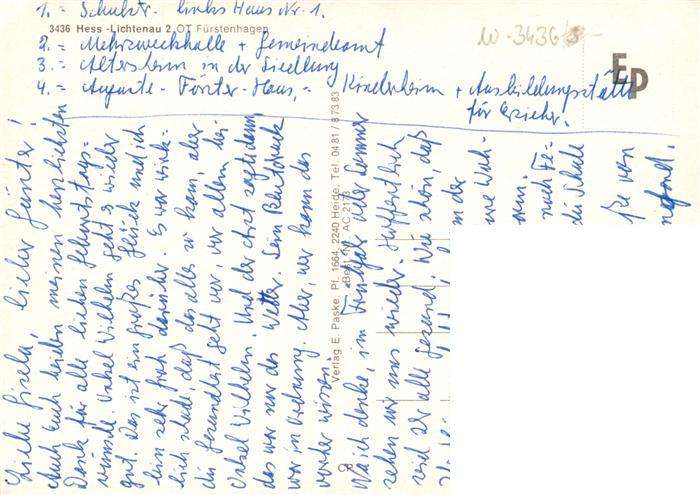 1. = Schulstr. - linkes Haus Nr. 1.
3436 Hess.-Lichtenau 2, OT Fürstenhagen
2. = Mehrzweckhalle + Gemeindeamt
3. = Altersheim in der Siedlung
4. = Auguste-Förster-Haus, = Kinderheim + Ausbildungsstätte
für Erzieher.
W-3436
EP
Verlag E. Paske, Pf. 1664, 2240 Heide, Tel. 04 81 / 8 73 83
Best.-Nr. AC 2173
Liebe Gisela, lieber Günter!
Auch Euch beiden meinen herzlichsten
Dank für alle lieben Geburtstags-
wünsche. Onkel Wilhelm geht es wieder
gut. Das ist ein großes Glück und ich
bin sehr froh darüber. Es war wirk-
lich schade, daß das alles so kam, aber
die Gesundheit geht vor, vor allem bei
Onkel Wilhelm. Und der Arzt sagte dann,
das war nur das Wetter. Sein Blutdruck
war in Ordnung. Aber, wer kann das
vorher wissen.
Na ich denke, im Frühjahr oder Sommer
sehen wir uns wieder. Hoffentlich
seid Ihr alle gesund. Wie schön, daß
in der
nach Fe-
die Schule
von